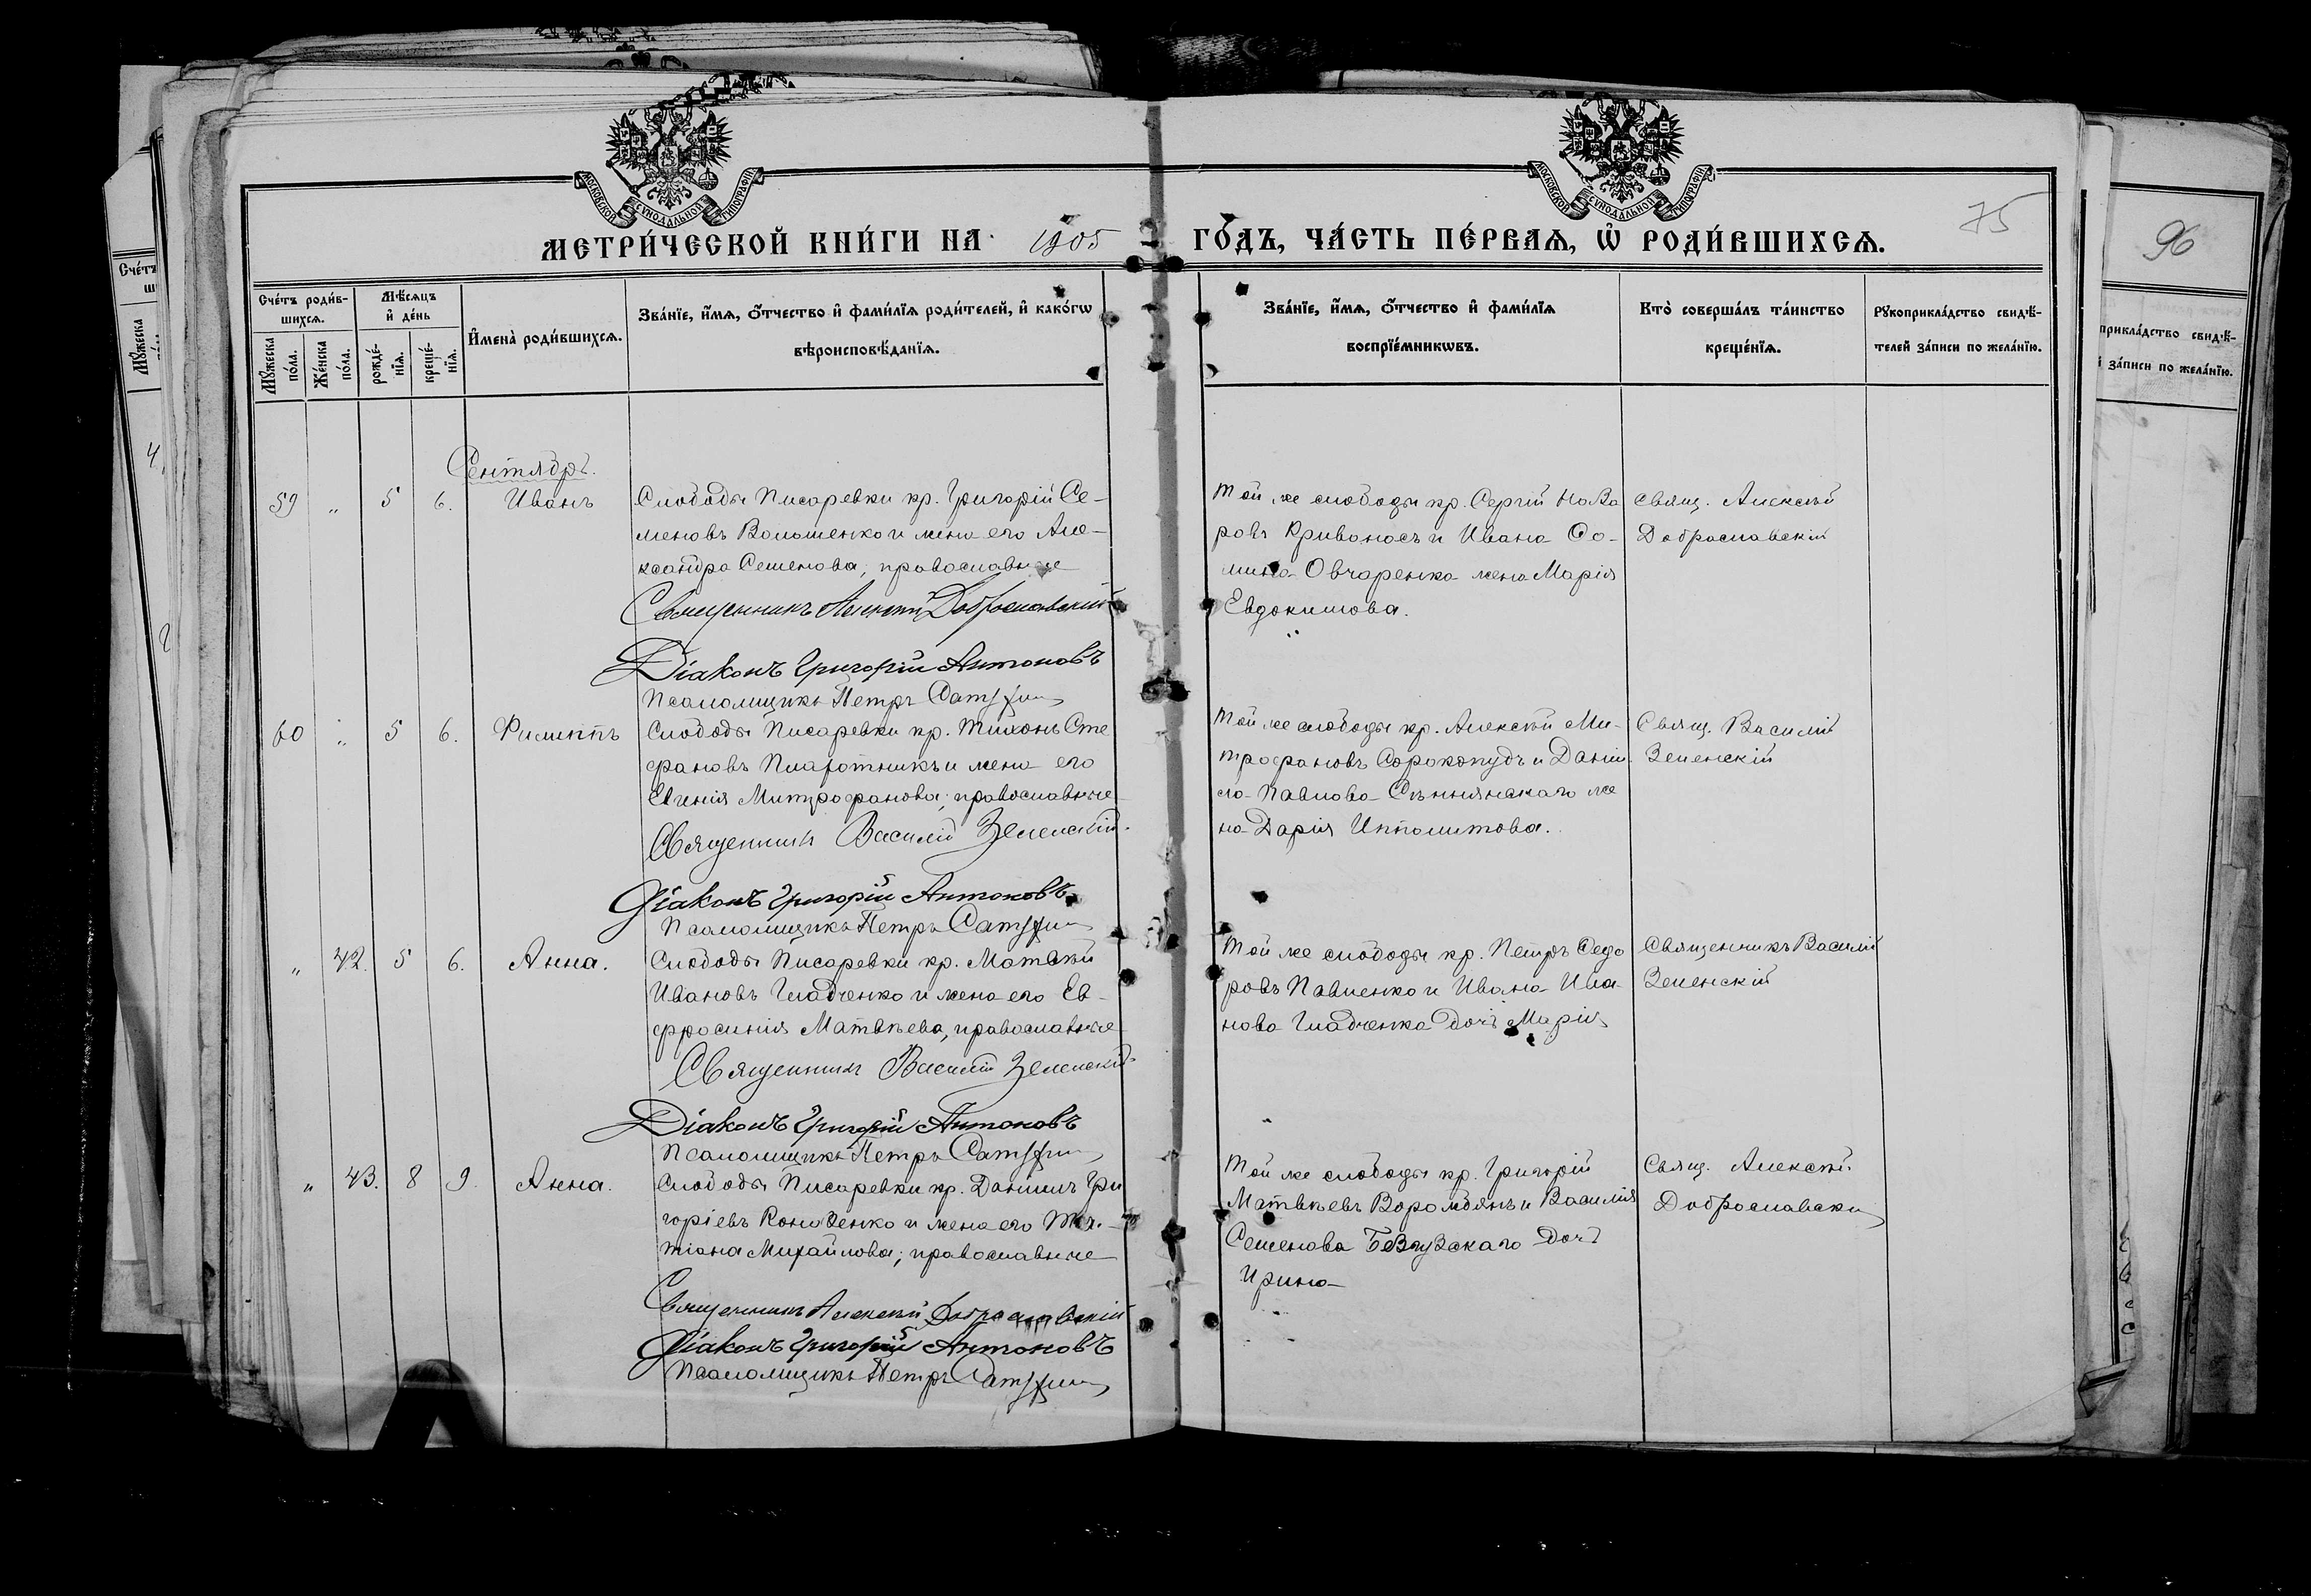 МОСКОВСКОЙ СѴНОДАЛЬНОЙ ТИПОГРАФІИ
МОСКОВСКОЙ СѴНОДАЛЬНОЙ ТИПОГРАФІИ
75
96
МЕТРИ́ЧЕСКОЙ КНИ́ГИ НА 1905 ГО́ДЪ, ЧА́СТЬ ПЕ́РВАѦ, Ѡ҆ РОДИ́ВШИХСѦ.
Сче́тъ роди́в-
шихсѧ.
Мꙋ́жеска
по́ла.
Же́нска
по́ла.
Мѣ́сѧцъ
и҆ де́нь
рожде́-
нїѧ.
креще́-
нїѧ.
И҆мена̀ роди́вшихсѧ.
Зва́нїе, и҆́мѧ, ѻ҆́тчество и҆ фами́лїѧ роди́телей, и҆ како́гѡ
вѣроисповѣ́данїѧ.
Зва́нїе, и҆́мѧ, ѻ҆́тчество и҆ фами́лїѧ
воспрїе́мникѡвъ.
Кто̀ соверша́лъ та́инство
креще́нїѧ.
Рꙋкоприкла́дство свидѣ́-
телей за́писи по жела́нїю.
прикла́дство свидѣ́-
за́писи по жела́нїю.
Сентябрь.
59 „ 5 6. Иванъ
Слободы Писаревки кр. Григорій Се-
меновъ Волошенко и жена его Але-
ксандра Семенова, православные
Священникъ Алексѣй Доброславскій
Діаконъ Григорій Антоновъ
Псаломщикъ Петръ
Той же слободы кр. Сергій
ровъ Кривоносъ и Ивана Со-
мина Овчаренка жена Марія
Евдокимова.
Свящ. Алексѣй
Доброславскій
60 „ 5 6. Филиппъ
Слободы Писаревки кр. Тихонъ Сте
фановъ Плахотникъ и жена его
Евгенія Митрофанова; православные
Священникъ Василій Зеленскій.
Діаконъ Григорій Антоновъ
Псаломщикъ Петръ
Той же слободы кр. Алексѣй Ми-
трофановъ Сорокопудъ и Даніи-
ла Павлова же
на Дарія Ипполитова.
Свящ. Василій
Зеленскій
„ 42. 5 6. Анна.
Слободы Писаревки кр. Матвѣй
Ивановъ Гладченко и жена его Ев-
фросинія Матвѣева, православные
Священникъ Василій Зеленскій
Діаконъ Григорій Антоновъ
Псаломщикъ Петръ
Той же слободы кр. Петръ Седо
ровъ Павленко и Ивана Ива-
нова Гладченка дочь Марія
Священникъ Василій
Зеленскій
„ 43. 8 9. Анна.
Слободы Писаревки кр. Даніилъ Гри
горіевъ Коноваенко и жена его Та-
тіана Михайлова; православные
Священникъ Алексѣй Доброславскій
Діаконъ Григорій Антоновъ
Псаломщикъ Петръ
Той же слободы кр. Григорій
Матвѣевъ Ворожбянъ и Василія
Семенова дочь
Ирина
Свящ. Алексѣй
Доброславскій